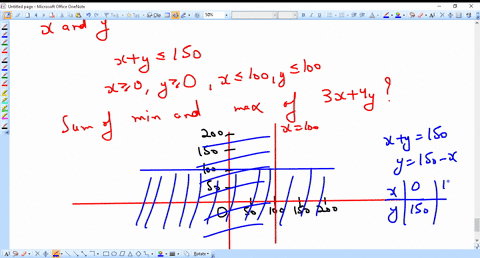 Untitled page - Microsoft OneNote
50%
x and y
x+y ≤ 150
x ≥ 0, y ≥ 0, x ≤ 100, y ≤ 100
Sum of min and max of 3x+4y?
x=100
200
150
100
50
0 50 100 150 200
x+y = 150
y = 150-x
x 0
y 150
Rotate